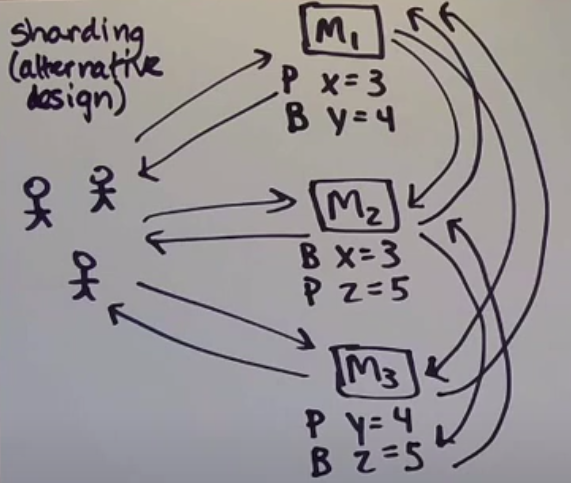 sharding
(alternative
design)
M1
P x=3
B y=4
M2
B x=3
P z=5
M3
P y=4
B z=5